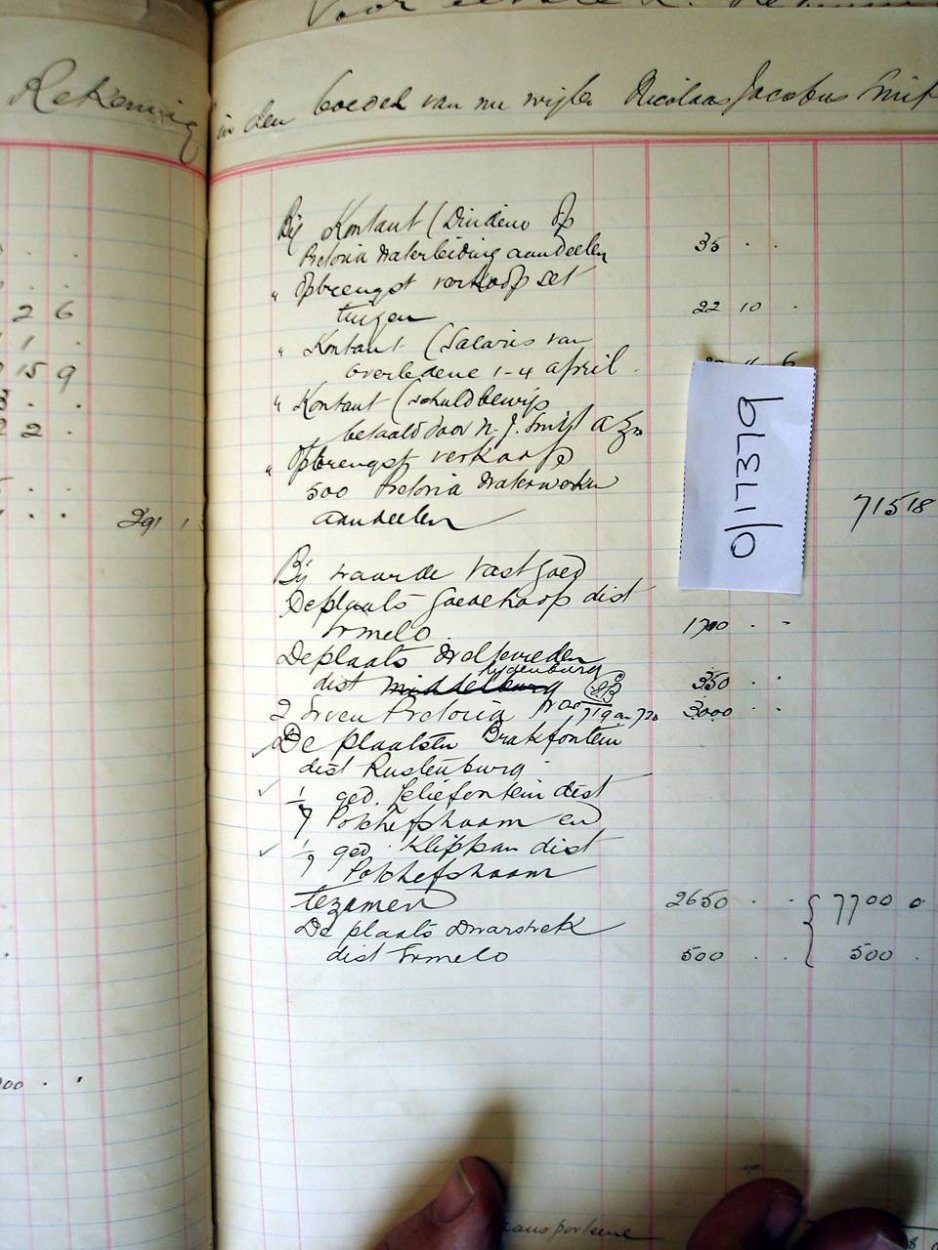 Rekening in den boedel van nu wijlen Nicolaas Jacobus Smit
Bij Kontant (Dividend op
Pretoria Waterleiding aandeelen 35 . .
" Opbrengst verkoop set
tuigen 22 10 .
" Kontant (Salaris van
overledene 1-4 april .
" Kontant (schuldbewijs
betaald door N. J. Smit A Zn
" Opbrengst verkoop
500 Pretoria Waterwerken
aandeelen 715 18
Bij waarde Vastgoed
De plaats Goedehoop dist
Ermelo . 1700 . .
De plaats Weltevreden
Lydenburg
dist Middelburg 350 . .
2 Erven Pretoria Nos 719 an 720 3000 . .
De plaatsen Brakfontein
dist Rustenburg
1/7 ged. Geliefontein dist
Potchefstroom en
1/9 ged. Klippan dist
Potchefstroom
tezamen 2650 . . 7700 0
De plaats Dwarstrek
dist Ermelo 500 . . 500 .
0/17379
2 6
1 .
15 9
2 .
291 1